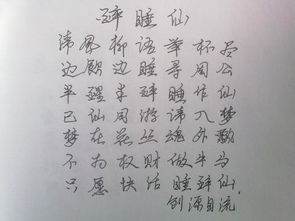 醉睡仙
清风柳语举杯尽
边饮边睡寻周公
半醒半醉睡作仙
已仙周游请入梦
梦在云丝魂外飘
不为权财做牛马
只愿快活睡醉仙
创源自流